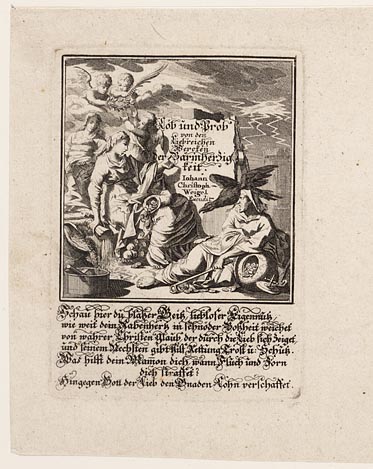 Lob und Prob
von den
Liebreichen
Wercken
der Barmhertzig
keit.
Iohann
Christoph
Weigel
Excudit
Schau hier du blasser Geitz, liebloser Eigennutz,
wie weit dein Rabenhertz in schnöder Boßheit weichet
von wahrer Christen Glaub, der durch die Lieb sich zeiget
und seinem Nechsten gibt Hilff Rettung Trost u: Schutz.
Was hilft dein Mamon dich, wann Fluch und Zorn
dich straffet?
Hingegen Gott der Lieb den Gnaden Lohn verschaffet.